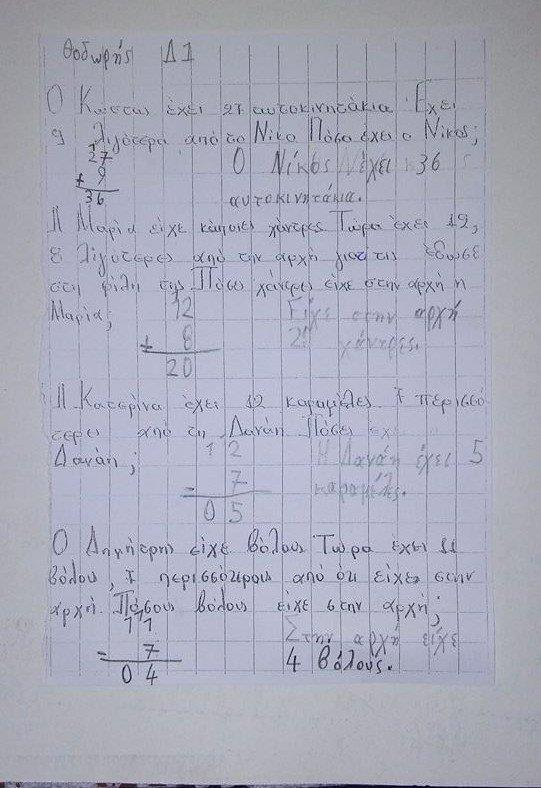 Θοδωρής Δ1
Ο Κώστας έχει 27 αυτοκινητάκια Έχει
9 λιγότερα από το Νίκο Πόσα έχει ο Νίκος;
1
27
+ 9
36
Ο Νίκος έχει 36
αυτοκινητάκια.
Η Μαρία είχε κάποιες χάντρες Τώρα έχει 12,
8 λιγότερες από την αρχή γιατί τις έδωσε
στη φίλη της Πόσες χάντρες είχε στην αρχή η
Μαρία;
12
+ 8
20
Είχε στην αρχή
χάντρες.
Η Κατερίνα έχει 12 καραμέλες 7 περισσό
τερες από τη Δανάη Πόσες έχει
Δανάη;
12
- 7
05
Η Δανάη έχει 5
καραμέλες.
Ο Δημήτρης είχε βόλους Τώρα έχει 11
βόλους, 7 περισσότερους από ότι είχε στην
αρχή Πόσους βόλους είχε στην αρχή;
11
= 7
04
Στην αρχή είχε
4 βόλους.